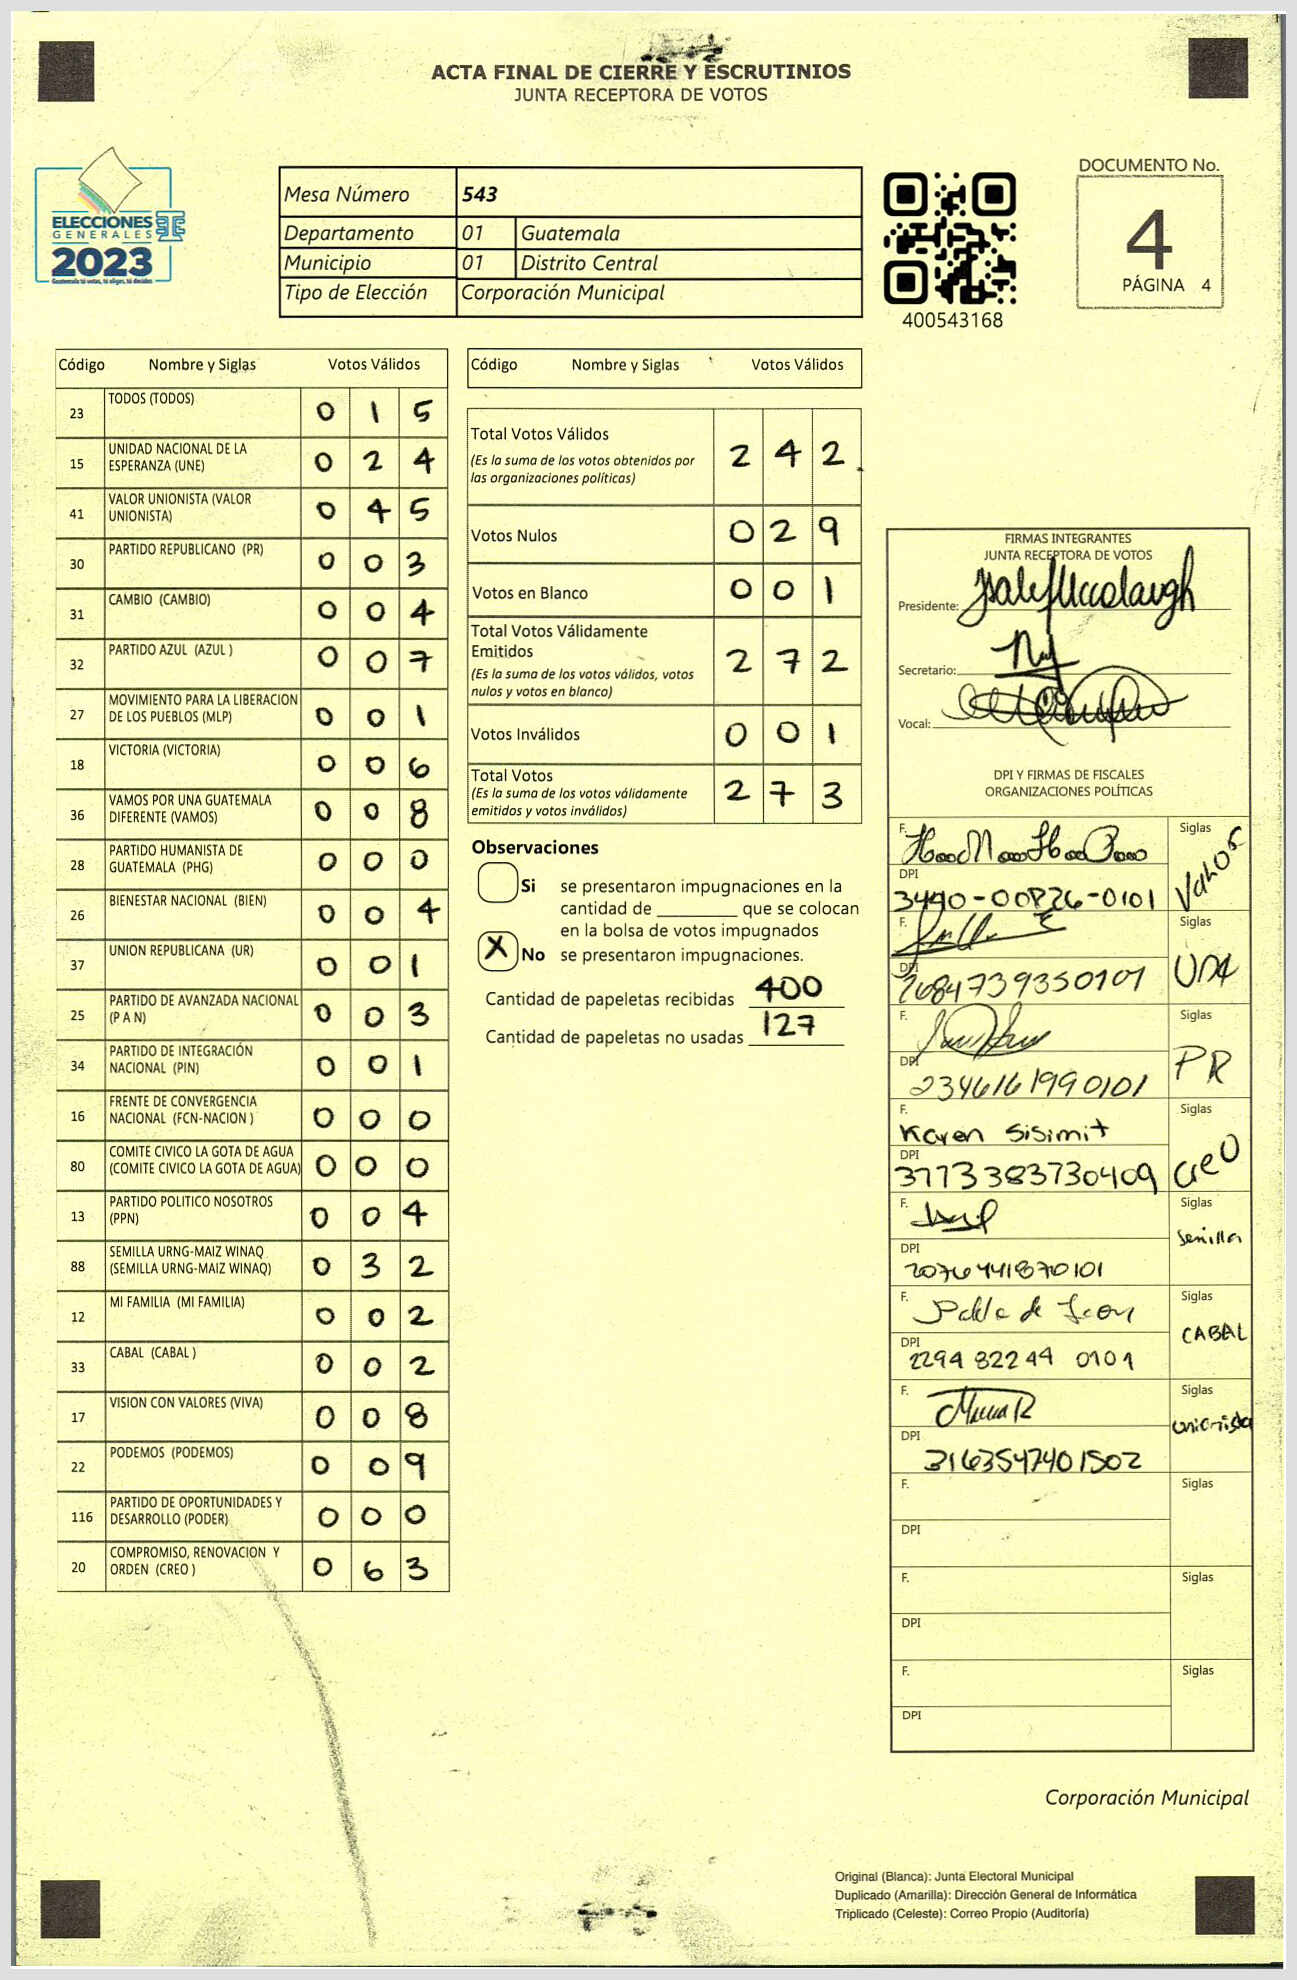 ACTA FINAL DE CIERRE Y ESCRUTINIOS
JUNTA RECEPTORA DE VOTOS
ELECCIONES
GENERALES
2023
Guatemala tú votas, tú eliges, tú decides
Mesa Número 543
Departamento 01 Guatemala
Municipio 01 Distrito Central
Tipo de Elección Corporación Municipal
400543168
DOCUMENTO No.
4
PÁGINA 4
Código Nombre y Siglas Votos Válidos
23 TODOS (TODOS) 0 1 5
15 UNIDAD NACIONAL DE LA
ESPERANZA (UNE) 0 2 4
41 VALOR UNIONISTA (VALOR
UNIONISTA) 0 4 5
30 PARTIDO REPUBLICANO (PR) 0 0 3
31 CAMBIO (CAMBIO) 0 0 4
32 PARTIDO AZUL (AZUL ) 0 0 7
27 MOVIMIENTO PARA LA LIBERACION
DE LOS PUEBLOS (MLP) 0 0 1
18 VICTORIA (VICTORIA) 0 0 6
36 VAMOS POR UNA GUATEMALA
DIFERENTE (VAMOS) 0 0 8
28 PARTIDO HUMANISTA DE
GUATEMALA (PHG) 0 0 0
26 BIENESTAR NACIONAL (BIEN) 0 0 4
37 UNION REPUBLICANA (UR) 0 0 1
25 PARTIDO DE AVANZADA NACIONAL
(P A N) 0 0 3
34 PARTIDO DE INTEGRACIÓN
NACIONAL (PIN) 0 0 1
16 FRENTE DE CONVERGENCIA
NACIONAL (FCN-NACION ) 0 0 0
80 COMITE CIVICO LA GOTA DE AGUA
(COMITE CIVICO LA GOTA DE AGUA) 0 0 0
13 PARTIDO POLITICO NOSOTROS
(PPN) 0 0 4
88 SEMILLA URNG-MAIZ WINAQ
(SEMILLA URNG-MAIZ WINAQ) 0 3 2
12 MI FAMILIA (MI FAMILIA) 0 0 2
33 CABAL (CABAL ) 0 0 2
17 VISION CON VALORES (VIVA) 0 0 8
22 PODEMOS (PODEMOS) 0 0 9
116 PARTIDO DE OPORTUNIDADES Y
DESARROLLO (PODER) 0 0 0
20 COMPROMISO, RENOVACION Y
ORDEN (CREO ) 0 6 3
Código Nombre y Siglas Votos Válidos
Total Votos Válidos 2 4 2
(Es la suma de los votos obtenidos por
las organizaciones políticas)
Votos Nulos 0 2 9
Votos en Blanco 0 0 1
Total Votos Válidamente
Emitidos 2 7 2
(Es la suma de los votos válidos, votos
nulos y votos en blanco)
Votos Inválidos 0 0 1
Total Votos 2 7 3
(Es la suma de los votos válidamente
emitidos y votos inválidos)
Observaciones
Si se presentaron impugnaciones en la
cantidad de ________ que se colocan
en la bolsa de votos impugnados
X No se presentaron impugnaciones.
Cantidad de papeletas recibidas 400
Cantidad de papeletas no usadas 127
FIRMAS INTEGRANTES
JUNTA RECEPTORA DE VOTOS
Presidente:
Secretario:
Vocal:
DPI Y FIRMAS DE FISCALES
ORGANIZACIONES POLÍTICAS
F. Siglas
Valor
DPI
F. Siglas
DPI
2684739350101
F. Siglas
PR
DPI
2346161990101
F. Siglas
Karen Sisimit
CREO
DPI
3773383730409
F. Siglas
Semilla
DPI
2076441870101
F. Siglas
Pablo de Leon
CABAL
DPI
2294 82244 0101
F. Siglas
unionista
DPI
3163547401502
F. Siglas
DPI
F. Siglas
DPI
F. Siglas
DPI
Corporación Municipal
Original (Blanca): Junta Electoral Municipal
Duplicado (Amarilla): Dirección General de Informática
Triplicado (Celeste): Correo Propio (Auditoría)